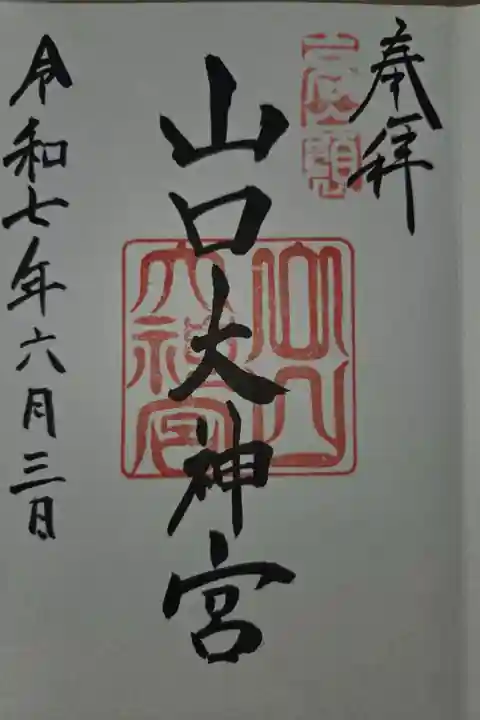 奉拝
山口大神宮
山口大神宮
令和七年六月三日